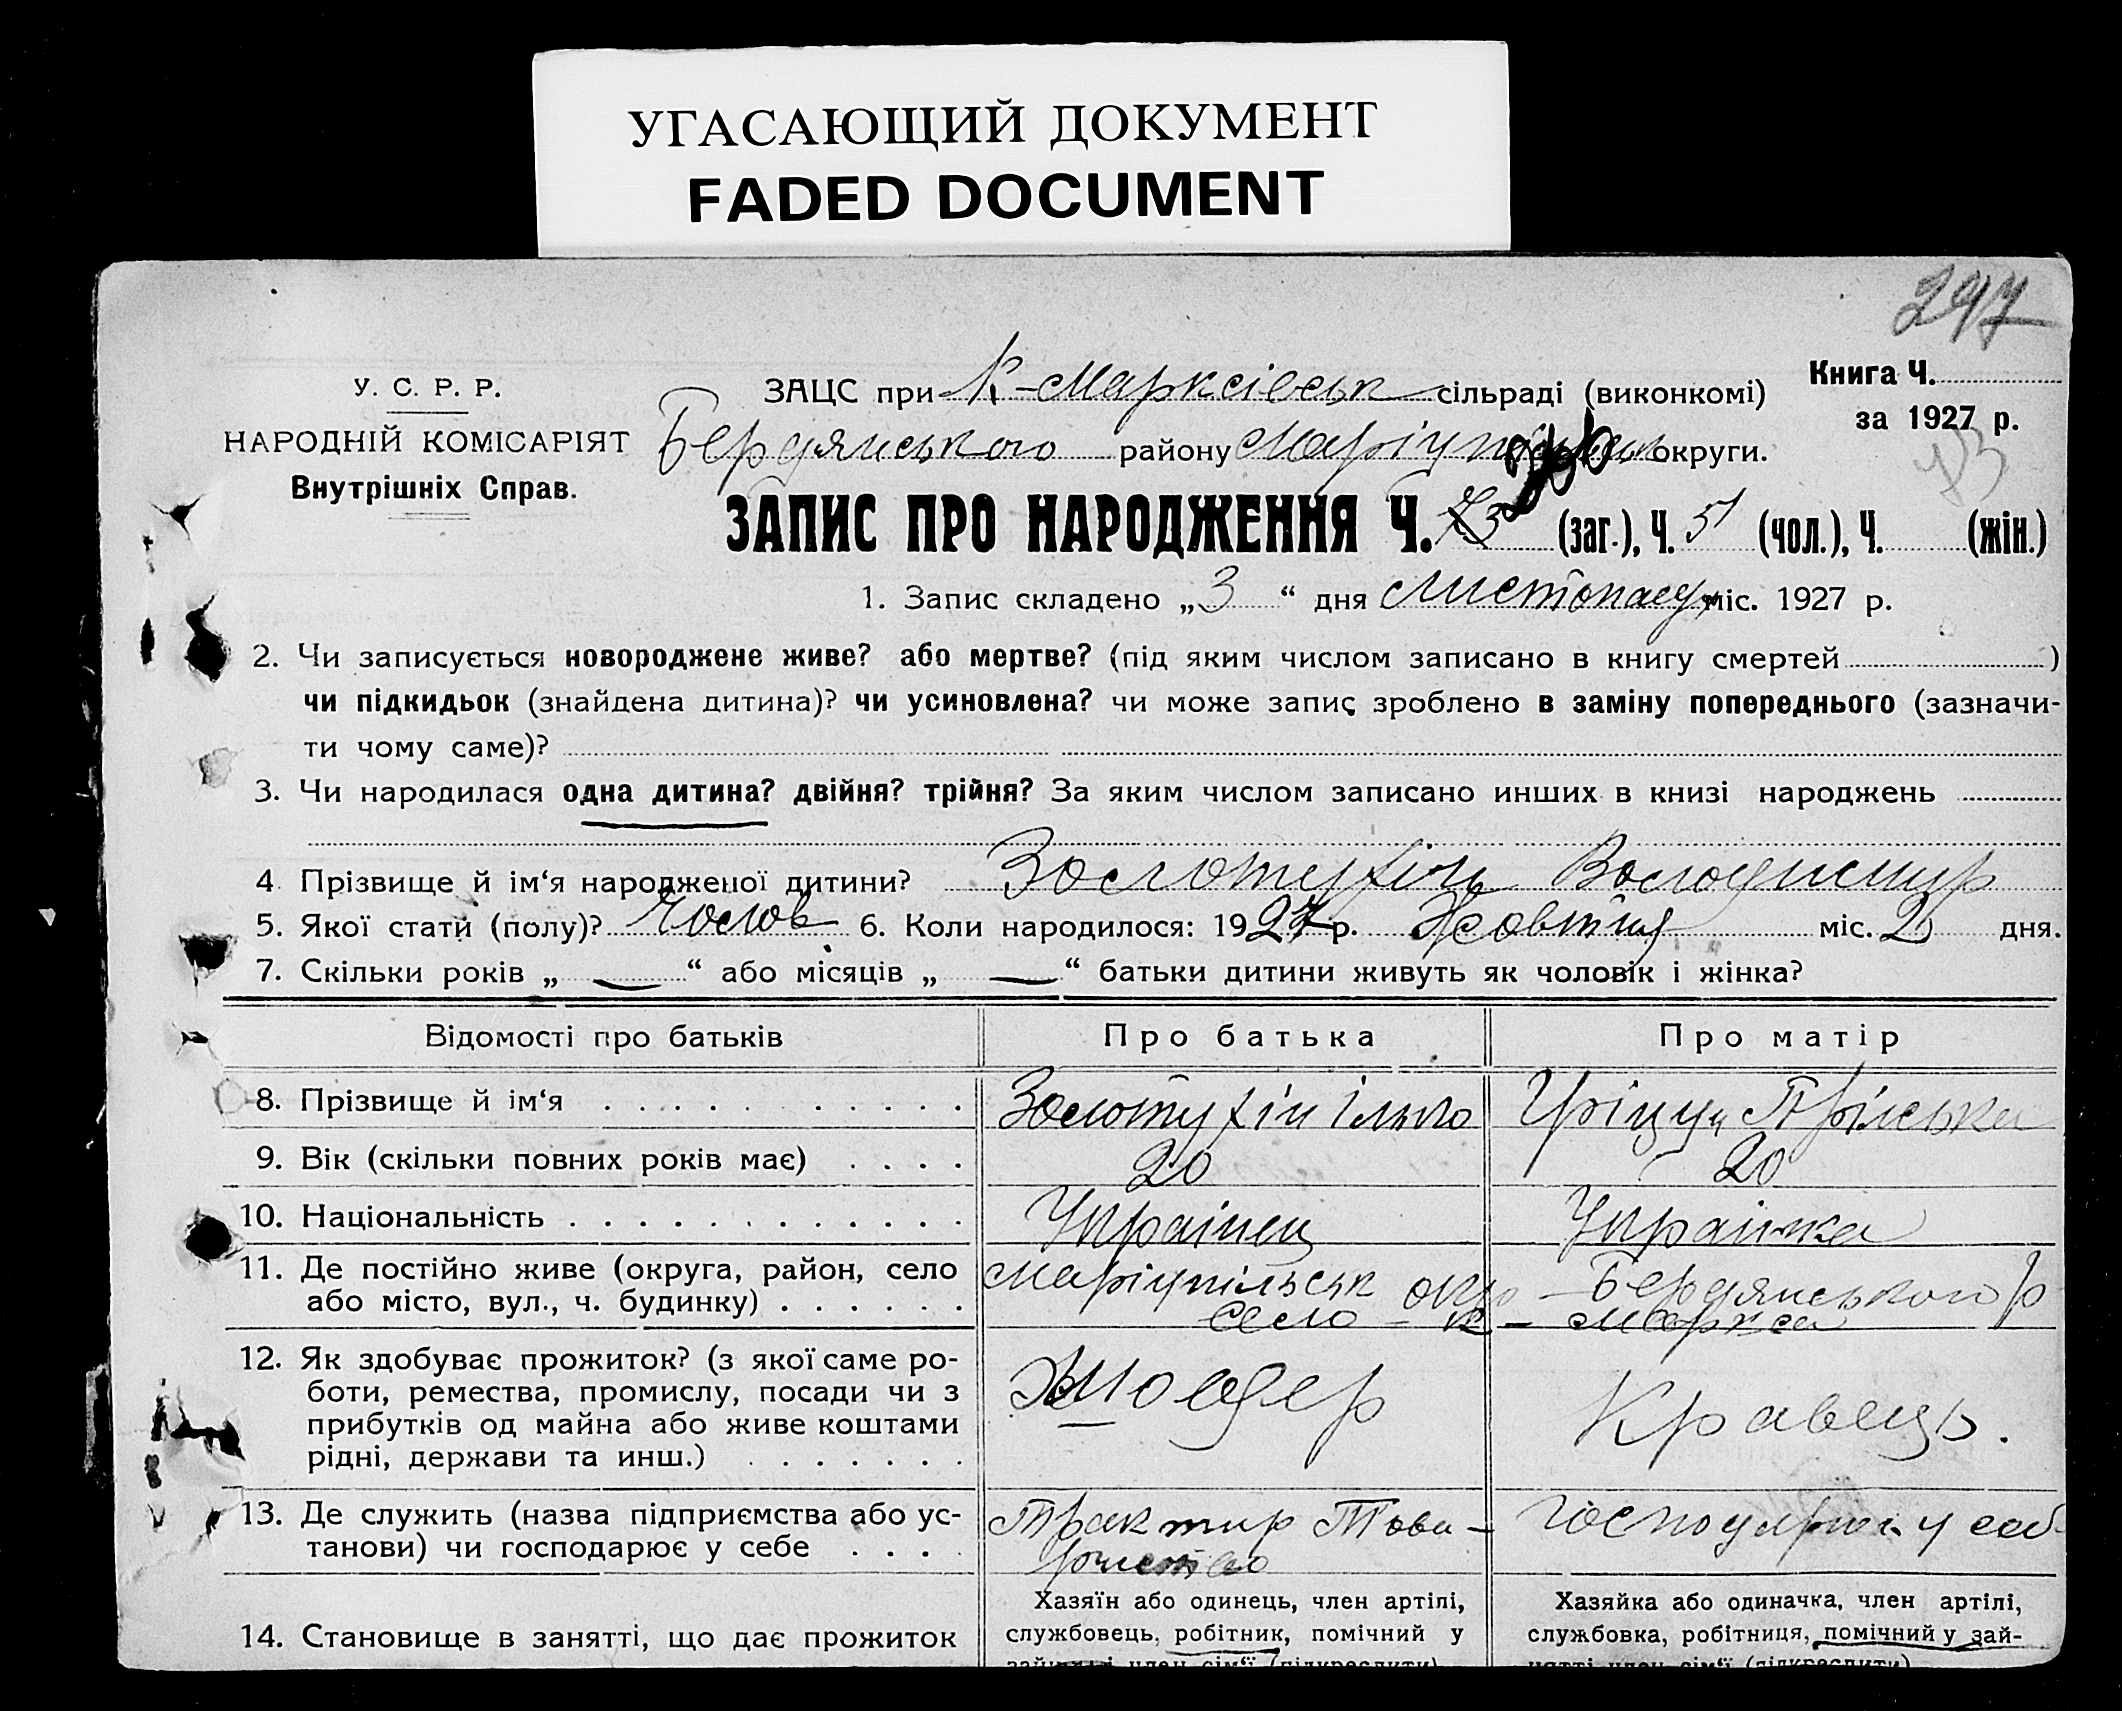 УГАСАЮЩИЙ ДОКУМЕНТ
FADED DOCUMENT
297
У. С. Р. Р.
НАРОДНІЙ КОМІСАРІЯТ
Внутрішніх Справ.
ЗАЦС при К-Марксівськ сільраді (виконкомі)
Бердянського району Маріупільськ округи.
Книга Ч.
за 1927 р.
ЗАПИС ПРО НАРОДЖЕННЯ Ч. (заг.), Ч. 51 (чол.), Ч. (жін.)
1. Запис складено „ 3 “ дня Листопаду міс. 1927 р.
2. Чи записується новороджене живе? або мертве? (під яким числом записано в книгу смертей )
чи підкидьок (знайдена дитина)? чи усиновлена? чи може запис зроблено в заміну попереднього (зазначи-
ти чому саме)?
3. Чи народилася одна дитина? двійня? трійня? За яким числом записано инших в книзі народжень
4. Прізвище й ім‘я народженої дитини? Золотухін Володимир
5. Якої стати (полу)? Чолов 6. Коли народилося: 1927 р. Жовтня міс. 2 дня.
7. Скільки років „ — “ або місяців „ — “ батьки дитини живуть як чоловік і жінка?
Відомості про батьків Про батька Про матір
8. Прізвище й ім‘я Золотухін Ілько
9. Вік (скільки повних років має) 20 20
10. Національність Українец Українка
11. Де постійно живе (округа, район, село Маріупільськ окр – Бердянського р
або місто, вул., ч. будинку) Село – К – Маркса
12. Як здобуває прожиток? (з якої саме ро-
боти, ремества, промислу, посади чи з
прибутків од майна або живе коштами
рідні, держави та инш.) Кравець.
13. Де служить (назва підприємства або ус- Трактир Това-
танови) чи господарює у себе
Хазяїн або одинець, член артілі, Хазяйка або одиначка, член артілі,
14. Становище в занятті, що дає прожиток службовець, робітник, помічний у службовка, робітниця, помічний у зай-
занятті член сім‘ї (підкреслити) нятті член сім‘ї (підкреслити)